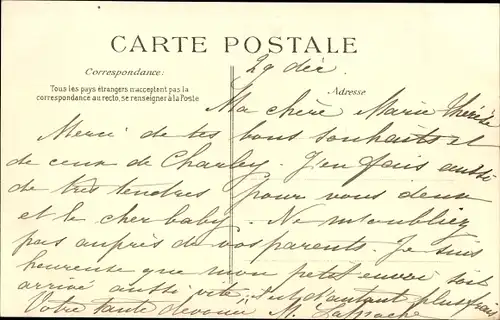 CARTE POSTALE
Correspondance:
Tous les pays étrangers n'acceptent pas la
correspondance au recto, se renseigner à la Poste
Adresse
29 déc.
Ma chère Marie Thérèse
Merci de tes bons souhaits et
de ceux de Charley. J'en fais aussi
de très tendres pour vous deux
et le cher baby. Ne m'oubliez
pas auprès de vos parents. Je suis
heureuse que mon petit envoi soit
arrivé aussi vite, d'autant plus
Votre tante dévouée M.